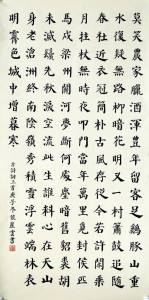 莫笑農家臘酒渾豐年留客足雞豚山重
水複疑無路柳暗花明又一村簫鼓追隨
春社近衣冠簡朴古風存從今若許閑乘
月拄杖無時夜叩門當年萬里覓封侯匹
馬戍梁州關河夢斷何處塵暗舊貂裘胡
未滅鬢先秋淚空流此生誰料心在天山
身老滄洲終南陰嶺秀積雪浮雲端林表
明霽色城中增暮寒
古詩詞三首